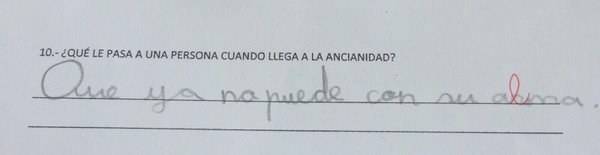 10.- ¿QUÉ LE PASA A UNA PERSONA CUANDO LLEGA A LA ANCIANIDAD?
Que ya no puede con su alma.